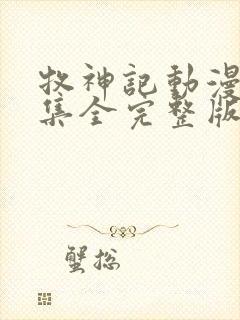 牧神記動漫
集全完整版
蟹总